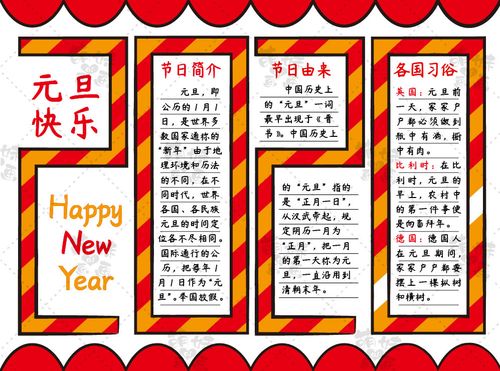 元旦
快乐
Happy
New
Year
节日简介
元旦，即
公历的1月1
日，是世界多
数国家通称的
“新年”由于地
理环境和历法
的不同，在不
同时代，世界
各国、各民族
元旦的时间定
位各不尽相同。
国际通行的公
历，把每年1
月1日作为“元
旦”。举国放假。
节日由来
中国历史上
的“元旦”一词
最早出现于《晋
书》。中国历史上
的“元旦”指的
是“正月一日”，
从汉武帝起，规
定阴历一月为
“正月”，把一月
的第一天称为元
旦，一直沿用到
清朝末年。
各国习俗
英国：元旦前
一天，家家户户
都必须做到
瓶中有酒，橱
中有肉。
比利时：在比
利时，元旦的
早上，农村中
的第一件事便
是向畜拜年。
德国：德国人
在元旦期间，
家家户户都要
摆上一棵枞树
和横树。